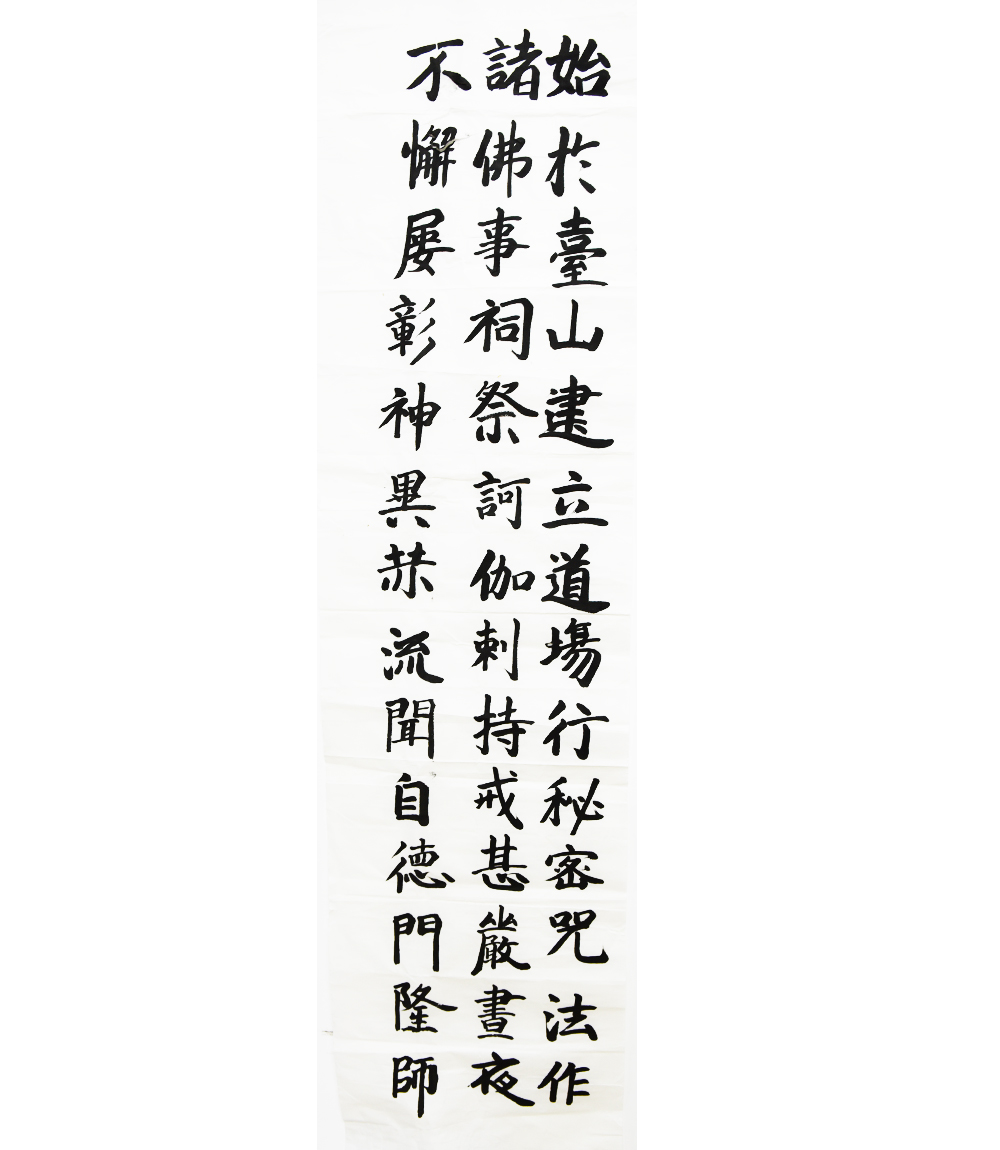 始於臺山建立道場行秘密咒法作
諸佛事祠祭訶伽刺持戒甚嚴晝夜
不懈屢彰神異赫流聞自德門隆師